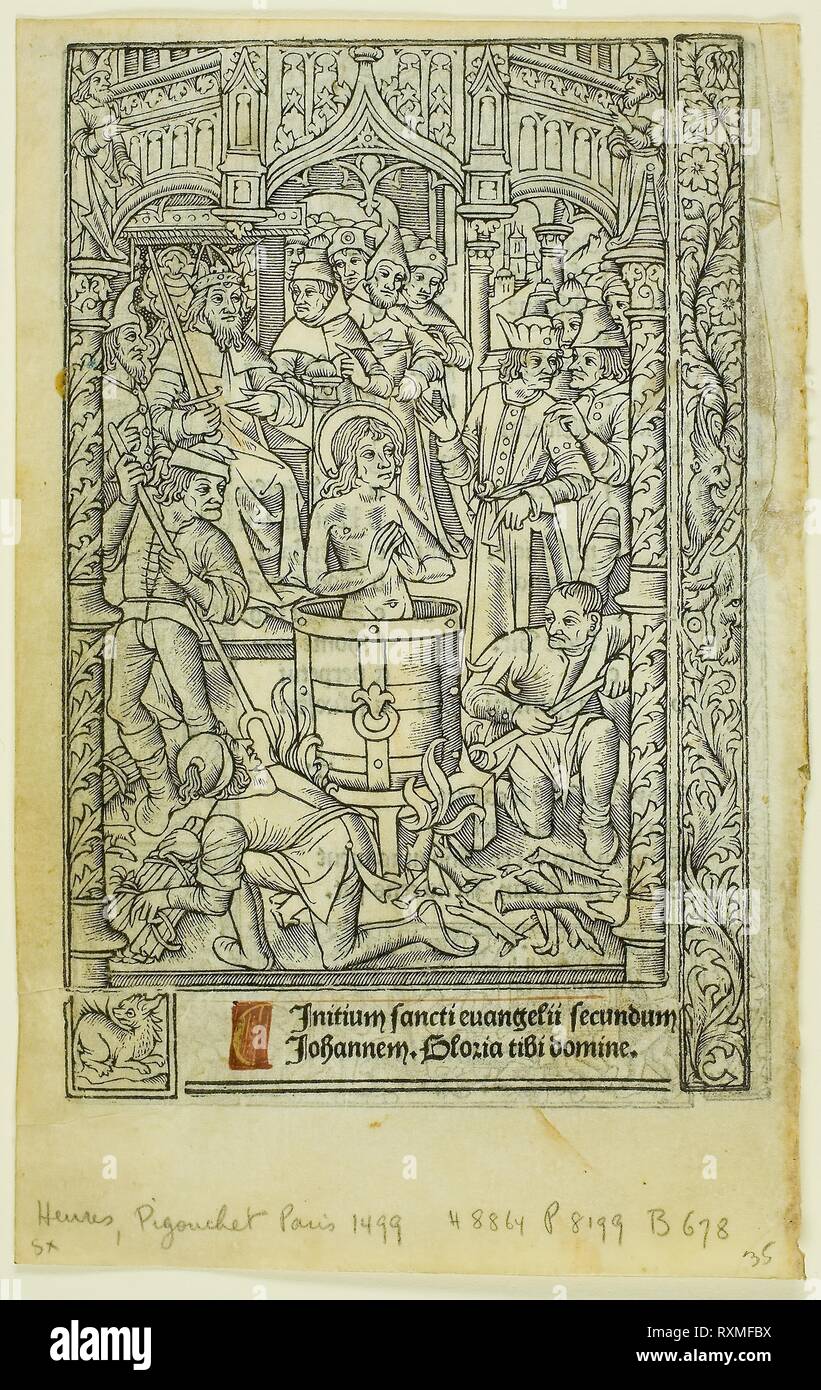 Initium sancti euangelii secundum
Johannem. Gloria tibi domine.
Heures, Pigouchet Paris 1499 H 8864 P 8199 B 678
35
alamy
Image ID: RXMFBX
www.alamy.com